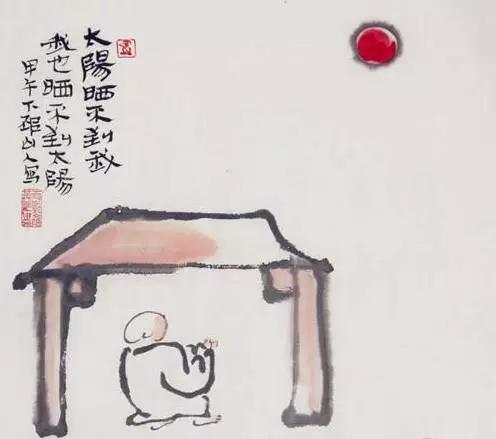 太陽晒不到我
我也晒不到太陽
甲午下邳山人寫